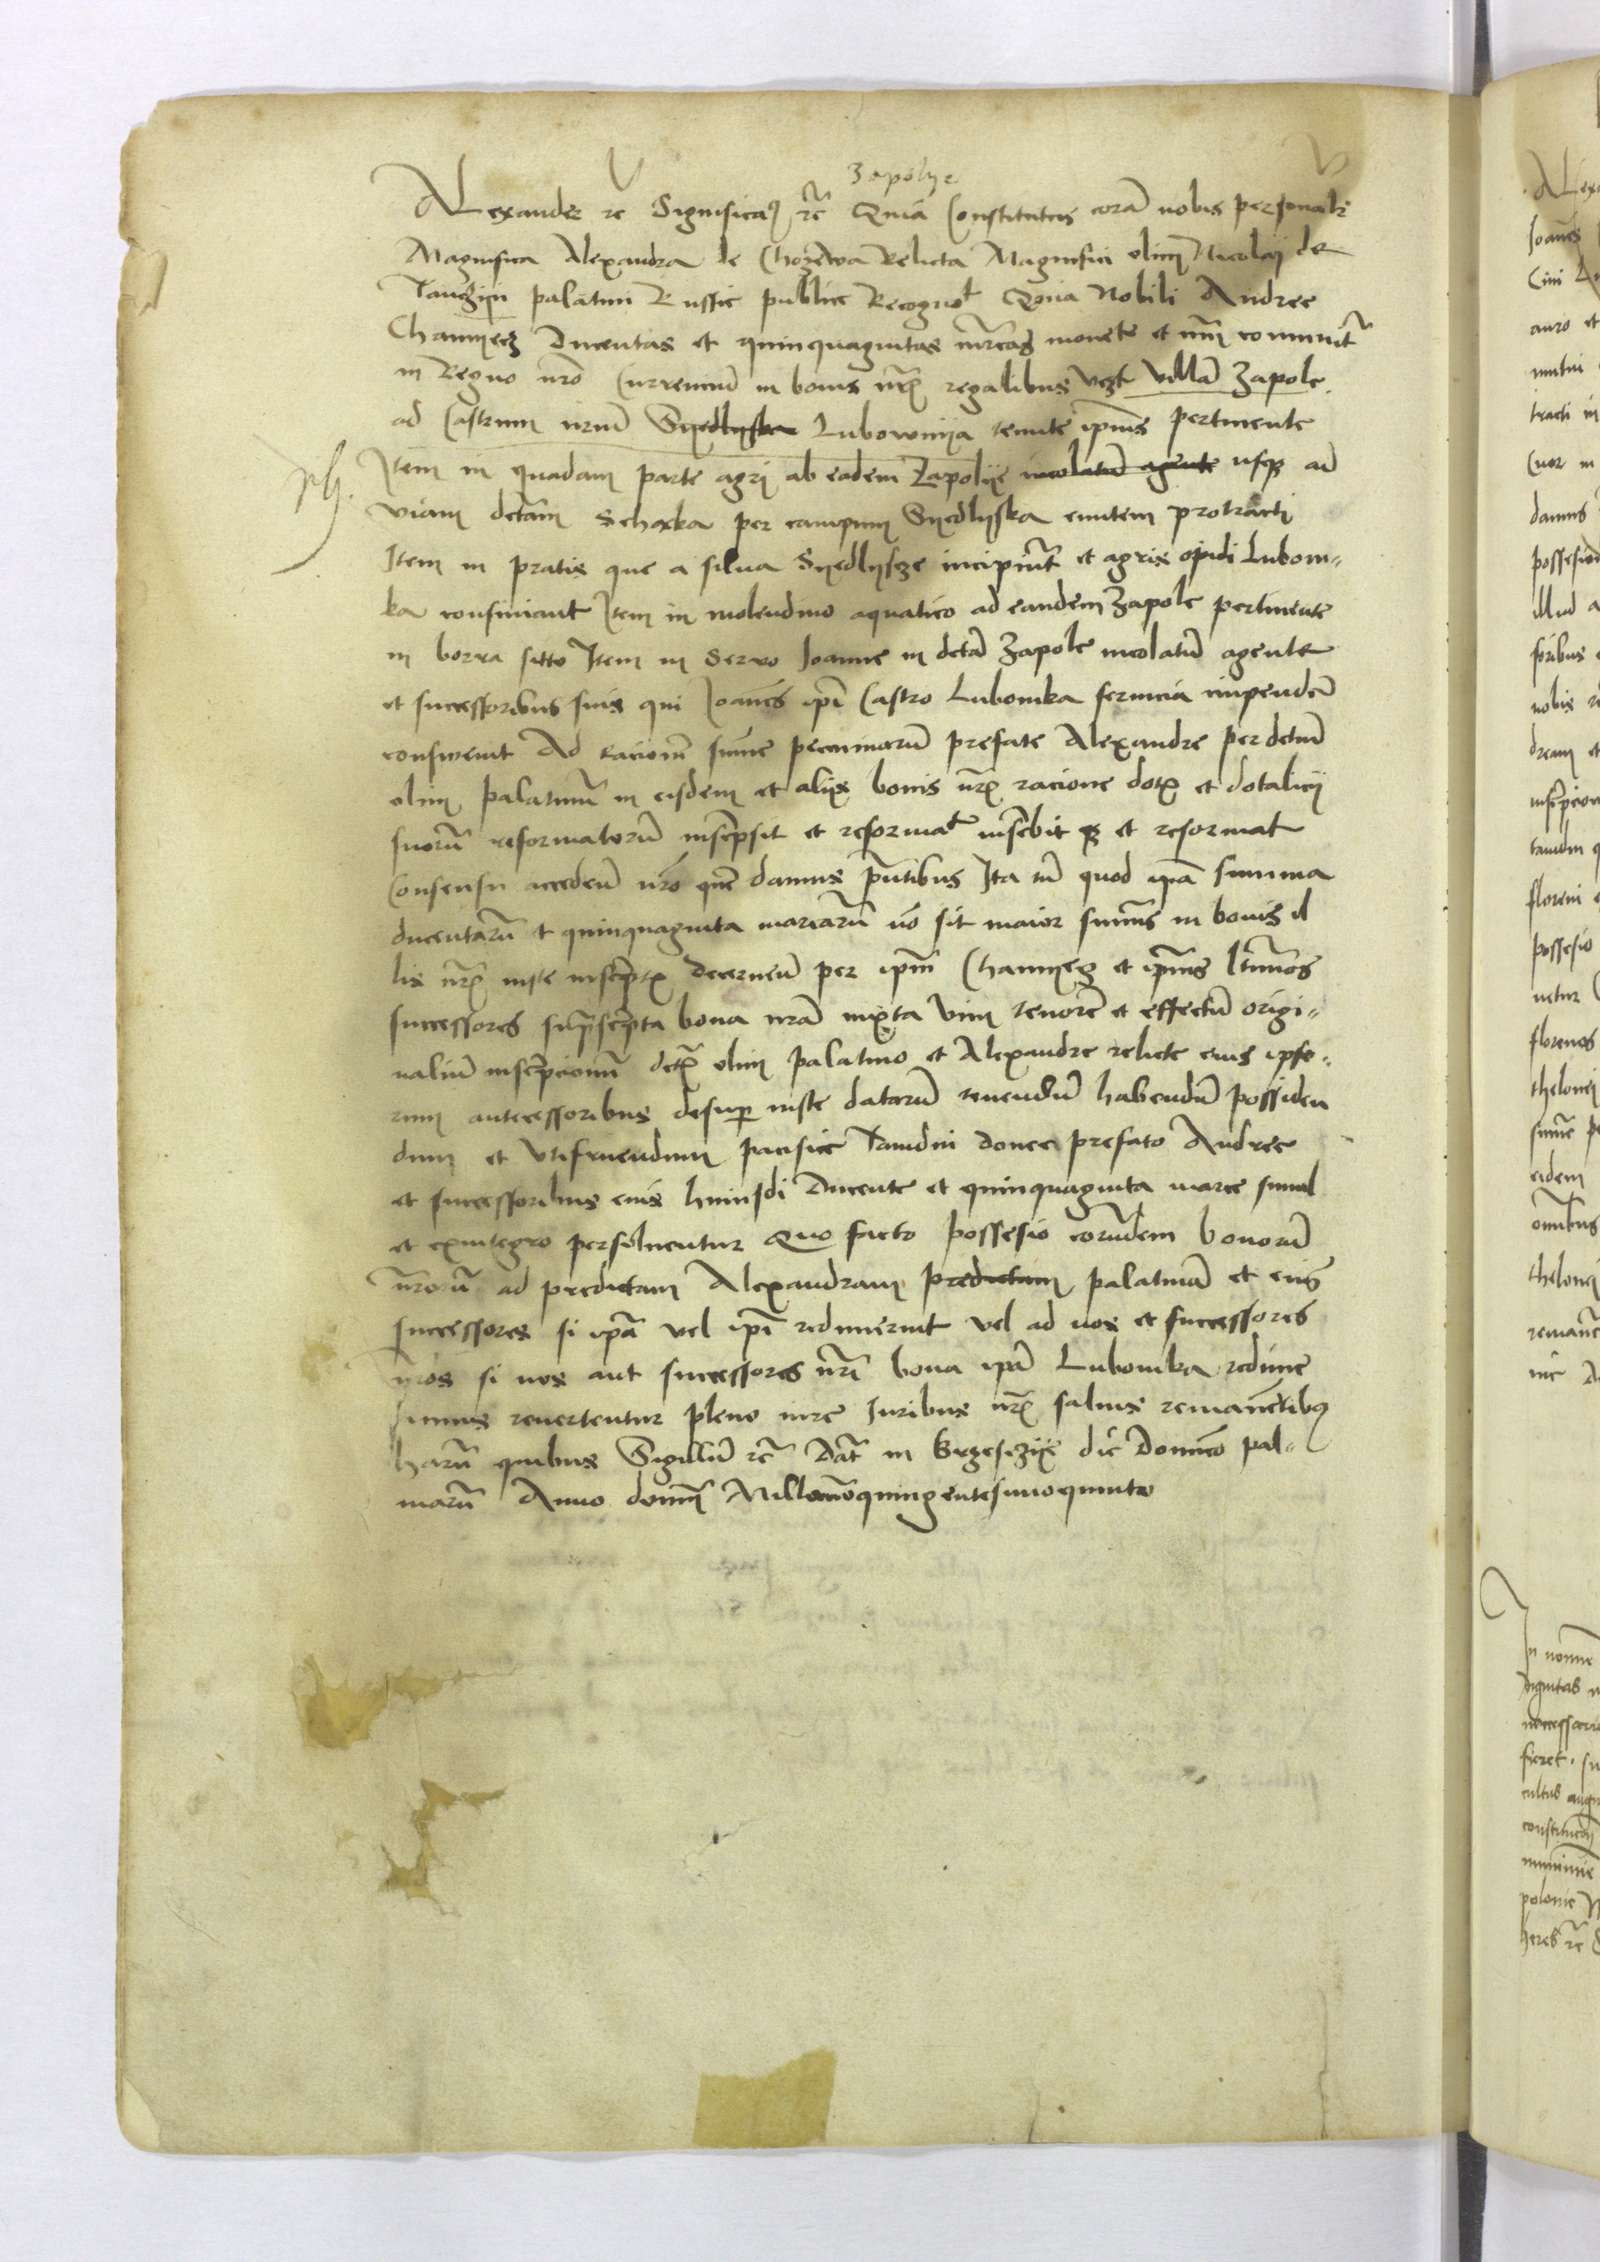 Zapolye
Alexander etc Significamus etc Quia Constitutus coram nobis personalr
Magnifica Alexandra de Chodecza Relicta Magnifici olim Nicolaj de
Tanczin palatini Russie publice Recognovit Quia Nobili Andree
Chamyecz Ducentas et quinquagintas mrcas monete et nri comunit
in Regno nro Curencium in bonis nris regalibus vzt villa Zapole
ad Castrum nrum Syedlyska Lubownya tenute ipius pertinente
Item in quadam parte agri ab eadem Zapolye incolatu agente usq ad
viam dctam Schoska per campum Syedlyska euntem protracti
Item in pratis que a silua Syedlysze incipiut et agris opidi Lubom-
ka confiniant Item in molendino aquatico ad eandem Zapole pertinente
in borra sitto Item in Servo Joanne in dcta Zapole incolatu agente
et successoribus suis qui Joanes ipi Castro Lubomka seruicia impende
consweuit Ad racione sume pecuniaru prefate Alexandre per dctum
olim palatinu in eisdem et aliis bonis nris racione dotis et dotalicij
suoru reformatoru inscripsit et reformat inscribit q et reformat
Consensu accedente nro que damus pntibus Ita tn quod ipa summa
ducentaru et quinquaginta marcaru no sit maior sumis in bonis il
lis nris iuste inscriptis Decernen per ipm Chamyecz et ipius ltimos
successores suprascripta bona nra iuxta vim tenore et effectu origi-
naliu inscripcionu dcto olim palatino et Alexandre relicte eius ipso-
rum antecessoribus desup iuste dataru tenendu habendu possiden
dum et utifruendum pacifice Tamdiu donec prefato Andree
et successoribus eius huiusdi Ducente et quinquaginta marce simul
et exintegro persoluentur Quo facto possesio eorundem bonoru
nroru ad predictam Alexandram predictam palatina et eius
successores si ipa vel ipi redimerint vel ad nos et successores
nros si nos aut successores nri bona ipa Lubomka redime
rimus reuertentur pleno iure Juribus nris saluis remanetibus
haru quibus Sigillu etc Dat in die Dominco pal-
maru Anno domini Millesimoquingentesimoquinto